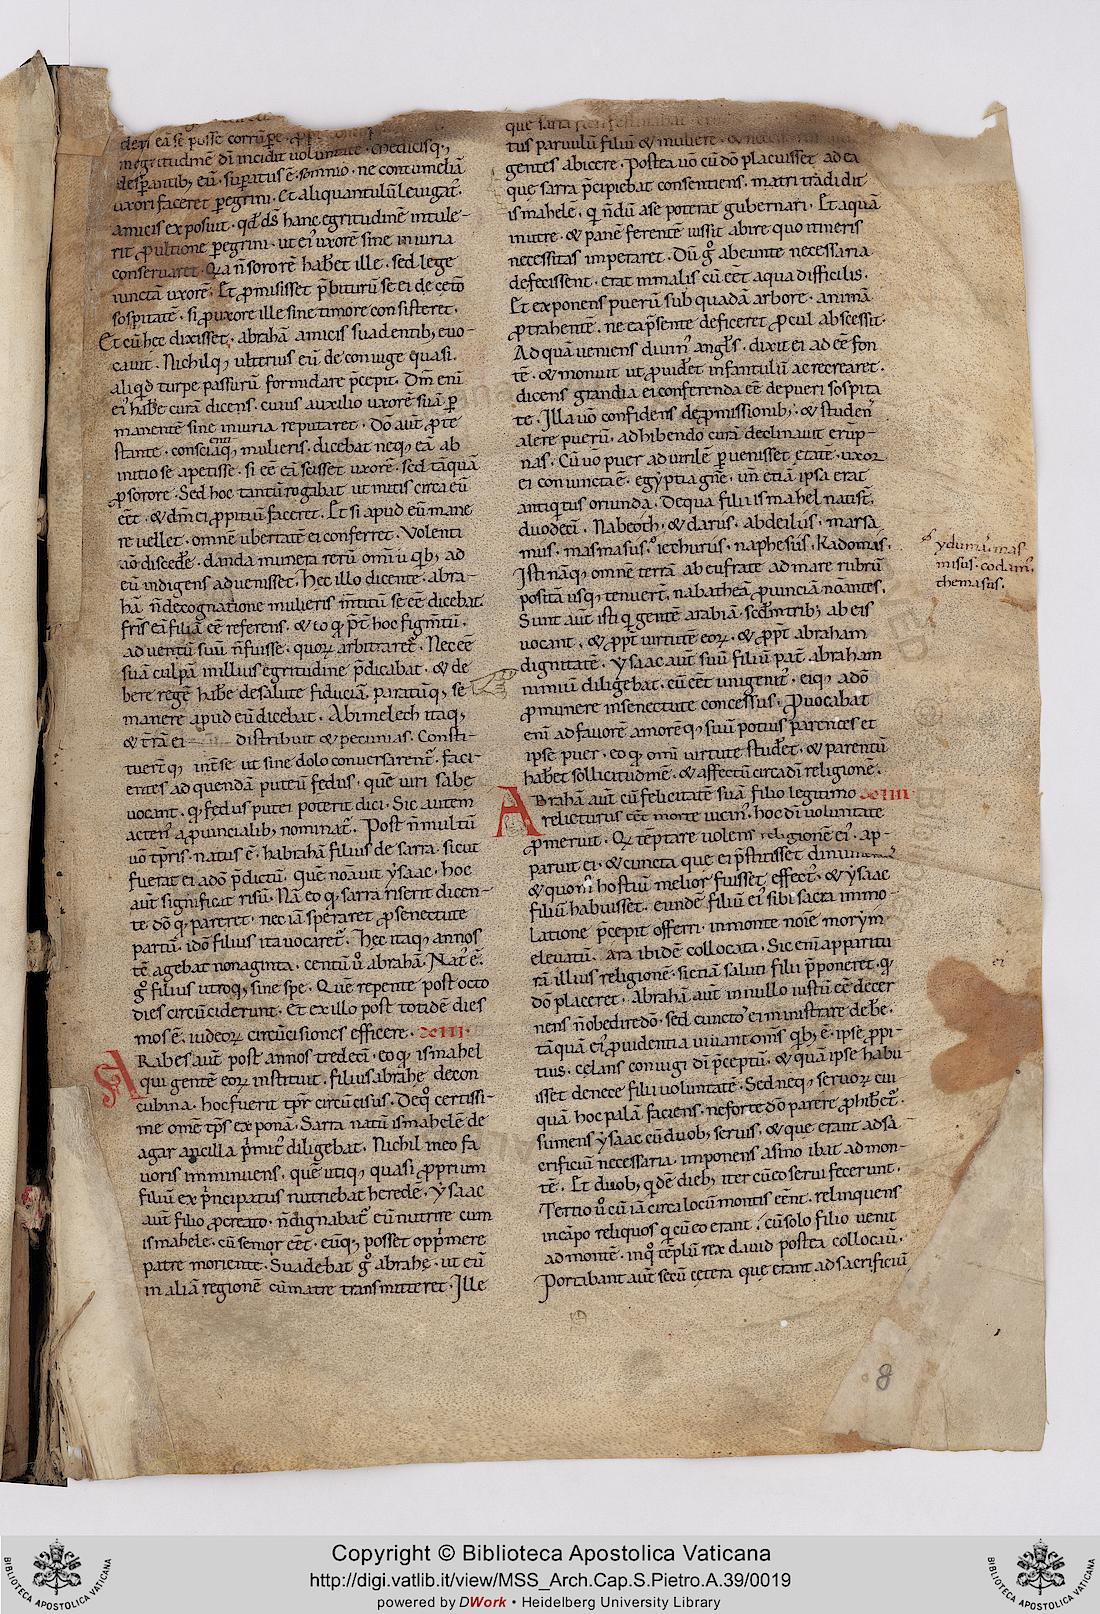 dexi eā se posse corrūpe.
megritudinē di incidit voluntate. Medicisq;
despantib; eū. supatus ē somnio. ne contumeliā
uxori faceret pegrini. Et aliquantulū leuigat᷒.
amicis exposuit. qd ds hanc egritudinē intule-
rit pro ultione peregrini. ut ei᷒ uxorē sine iniuria
conseruaret. Quia n̄ sororē habet ille. sed lege
iunctā uxorē. Et promisisset p̄biturū se ei de cetō
sospitatē. si pro uxore ille sine timore consisteret.
Et cū hec dixisset. abrahā amicis suadentib; euo-
cauit. Nichilq; ulterius eū de coniuge quasi
aliqd turpe passurū formidare p̄cepit. Dm̄ eni
ei᷒ habe curā dicens. cuius auxilio uxorē suā p
manentē sine iniuria reputaret. Dō aut̄ prote
stante. consciaq; mulieris. dicebat neq; eā ab
initio se apetisse. si eē eā scisset uxorē. sed tāquā
pro sorore. Sed hoc tantū rogabat ut mitis circa eū
eēt. & dm̄ ei propitiū faceret. Et si apud eū mane
re uellet. omnē ubertatē ei conferret. Volenti
aō discede. danda munera rerū om̄iū qb; ad
eū indigens aduenisset. Hec illo dicente. abra-
hā n̄ de cognatione mulieris m̄titū se eē dicebat.
fris eā filiā eē referens. & to q p̄t hoc figmtū.
aduentū suū n̄ fuisse. quoꝝ arbitraret᷒. Nec eē
suā culpā in illius egritudine p̄dicabat. & de
bere regē habe de salute fiduciā. paratūq; se
manere apud eū dicebat. Abimelech itaq;
& tr̄ā ei distribuit & pecunias. Consti-
tuert̄q; int̄ se ut sine dolo conuersarent᷒. faci-
entes ad quendā puteū fedus. quē uiri sabe
uocant. q fedus putei poterit dici. Sic autem
acten᷒ a prouincialib; nominat᷒. Post n̄ multū
uō tpris. natus ē. habrahā filius de sarra. sicut
fuerat ei adō p̄dictū. que noauit ysaac. hoc
aut̄ significat risū. Nā eo q sarra riserit dicen-
te dō q pareret. nec iā speraret pro senectute
partū. idō filius ita uocaret᷒. Hec itaq; annos
tē agebat nonaginta. centū ů abrahā. Nat᷒ ē.
g̊ filius utroq; sine spe. Quē repente post octo
dies circūciderunt. Et ex illo post totidē dies
mos ē. iudeoꝝ circūcisiones efficere. XIII.
ARabes aut̄ post annos tredecī. eo q ismahel
qui gentē eoꝝ instituit. filius abrahe de con
cubina. hoc fuerit tpr circūcisus. De q̊ certissi-
me ome tps exponā. Sarra natū ismahelē de
agar ancilla p̄mit᷒ diligebat. Nichil in eo fa
uoris imminuens. quē utiq; quasi proprium
filiū ex p̄ncipatus nutriebat heredē. Ysaac
aut̄ filio procreato. n̄ dignabat᷒ eū nutrire cum
ismahele. cū senior eēt. eūq; posset opprimere
patre moriente. Suadebat g̊ abrahe. ut eū
in aliā regionē cū matre transmitteret. Ille
que sarra
tus paruulū filiū & mulierē. &
gentes abicere. Postea uō cū dō placuisset ad ea
que sarra p̄cipiebat consentiens. matri tradidit
ismahelē. q n̄dū a se poterat gubernari. Et aquā
in utre. & panē ferentē iussit abire quo itineris
necessitas imperaret. Dū g̊ abeunte necessaria
defecissent. erat in malis cū eēt aqua difficilis.
Et exponens puerū sub quadā arbore. animā
protrahentē. ne ea p̄sente deficeret procul abscessit.
Ad quā ueniens diuin᷒ angls. dixit ei ad eē fon
tē. & monuit ut prouidet infantulū ac recrearet.
dicens grandia ei conferenda eē de pueri sospita
te. Illa uō confidens de promissionib;. & studen᷒
alere puerū. adhibendo curā declinauit erūp-
nas. Cū uō puer ad uirilē peruenisset etatē. uxor
ei coniuncta ē. egyptia gn̄e. un̄ etiā ipsa erat
antiqtus oriunda. De qua filii ismahel nati st̄.
duodecī. Nabeoth. & darus. abdeilus. marsa
mus. masmasus. iethurus. naphesus. Kadomas.
Isti nāq; omnē terrā ab eufrate ad mare rubrū
positā usq; tenuert̄. nabatheā prouinciā noantes.
Sunt aut̄ isti q gentē arabiā. sed & m̄ trib; ab eis
uocant. & propt̄ uirtutē eoꝝ. & propt̄ abraham
dignitatē. Ysaac aut̄ suū filiū pat̄ abraham
nimiū diligebat. eū eēt unigenit᷒. eiq; adō
pro munere in senectute concessus. Prouocabat
eni ad fauorē amorēq; suū potius parentes et
ipse puer. eo q omi uirtute studet. & parentū
habet sollicitudinē. & affectū circa dī religionē.
ABrahā aut̄ cū felicitatē suā filio legitimo XIIII
relicturus eēt morte uicin᷒. hoc di uoluntate
promeruit. Qi teptare uolens religionē ei᷒. ap-
paruit ei. & cuncta que ei p̄stitisset
& quom hostiū melior fuisset effect᷒. & ysaac
filiū habuisset. eundē filiū ei᷒ sibi sacra immo-
latione p̄cepit offerri. in monte noīe moryᷓm
eleuatū. ara ibidē collocata. Sic eni apparitu
rā illius religionē. si etiā saluti filii p̄poneret. q
dō placeret. Abrahā aut̄ in nullo iustū eē decer
nens n̄ obedire dō. sed cuncto ei ministrare debe.
tāquā ei᷒ prouidentia uiuant om̄s qb; ē. ipse propi-
tius. celans coniugi di p̄ceptū. & quā ipse habu
isset de nece filii uoluntatē. Sed neq; seruoꝝ cui
quā hoc palā faciens. ne forte dō parere prohibet᷒.
sumens ysaac cū duob; seruis. & que erant ad sā
crificiū necessaria. imponens asino ibat ad mon-
tē. Et duob; qdē dieb; iter cū eo serui fecerunt.
Tertio ů cū iā circa locū montis eēnt. relinquens
in cāpo reliquos q cū eo erant. cū solo filio uenit
ad montē. in q̊ tēplū rex dauid postea collocau᷒.
Portabant aut̄ secū cetera que erant ad sacrificiū
ydumā. mas
misus. codam᷒.
themasus.
8
Copyright © Biblioteca Apostolica Vaticana
http://digi.vatlib.it/view/MSS_Arch.Cap.S.Pietro.A.39/0019
powered by DWork • Heidelberg University Library
BIBLIOTECA APOSTOLICA VATICANA
BIBLIOTECA APOSTOLICA VATICANA